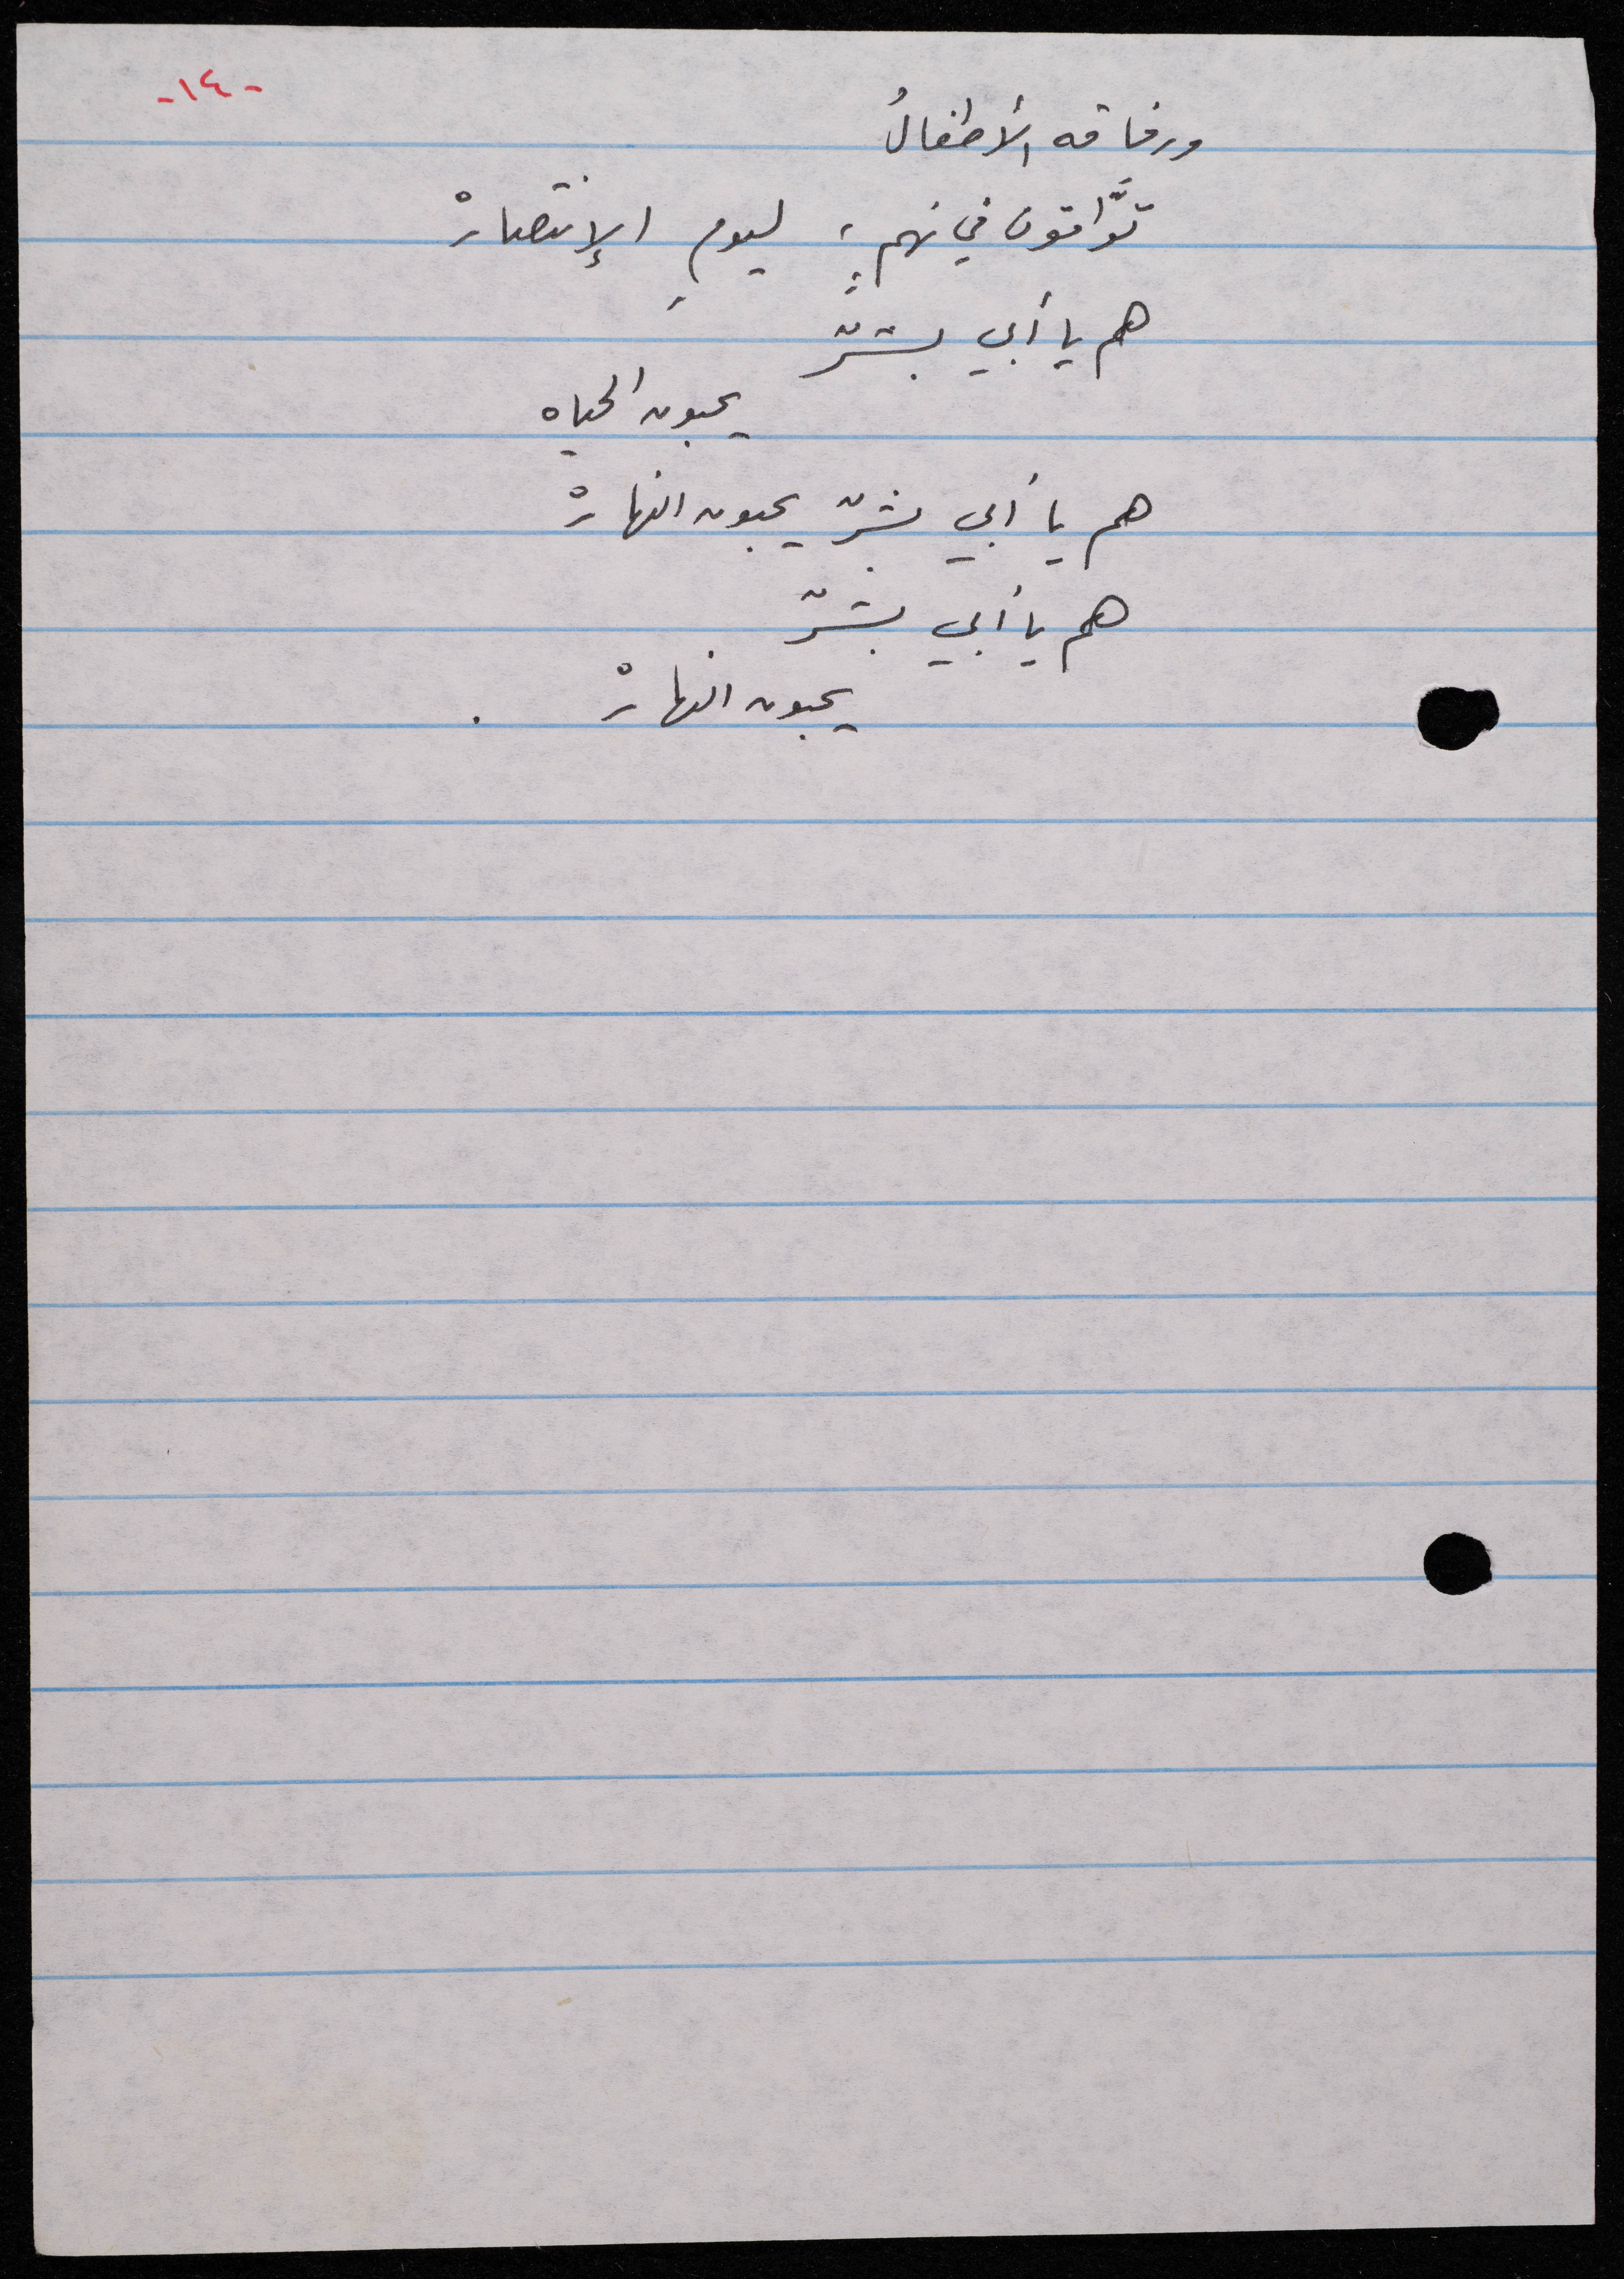 -١٤-
ورفاقه الأطفالُ
توَّاقون في نهمٍ، ليومِ الإنتصارْ
هم يا أبي بشرٌ
يحبون الحياه
هم يا أبي بشرٌ يحبون النهارْ
هم يا أبي بشرٌ
يحبون النهارْ .